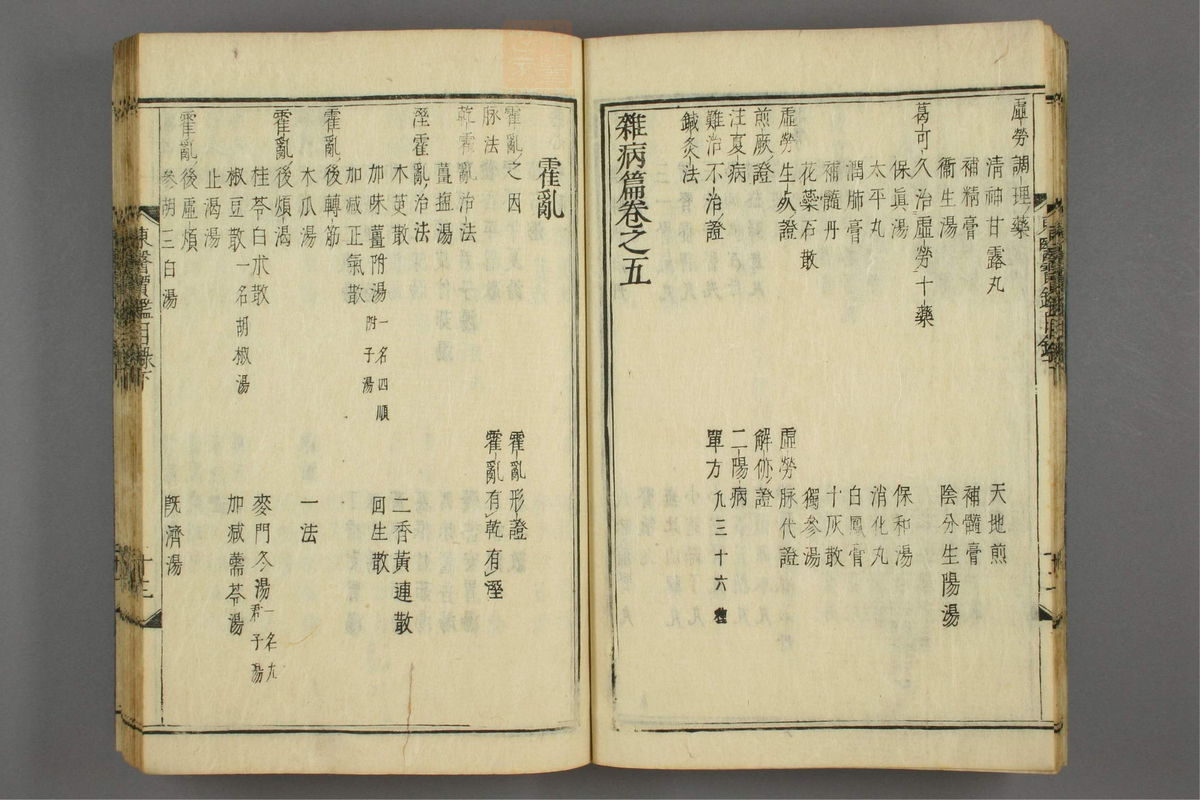 虛勞調理藥
清神甘露丸　天地煎
補精膏　補髓膏
衞生湯　陰分生陽湯
葛可久治虛勞十藥
保眞湯　保和湯
太平丸　消化丸
潤肺膏　白鳳膏
補髓丹　十灰散
花蘂石散　獨參湯
虛勞生死證　虛勞脉代證
煎厥證　解㑊證
注夏病　二陽病
難治不治證　單方凡三十六種
鍼灸法
雜病篇卷之五
霍亂
霍亂之因　霍亂形證
脉法　霍亂有乾有溼
乾霍亂治法
薑鹽湯
溼霍亂治法
木萸散　二香黃連散
加味薑附湯一名四順附子湯　回生散
加減正氣散
霍亂後轉筋
木瓜湯　一法
霍亂後煩渴
桂苓白朮散　麥門冬湯一名九君子湯
椒豆散一名胡椒湯　加減薷苓湯
止渴湯
霍亂後虛煩
參胡三白湯　旣濟湯
東醫寶鑑目錄下
十三